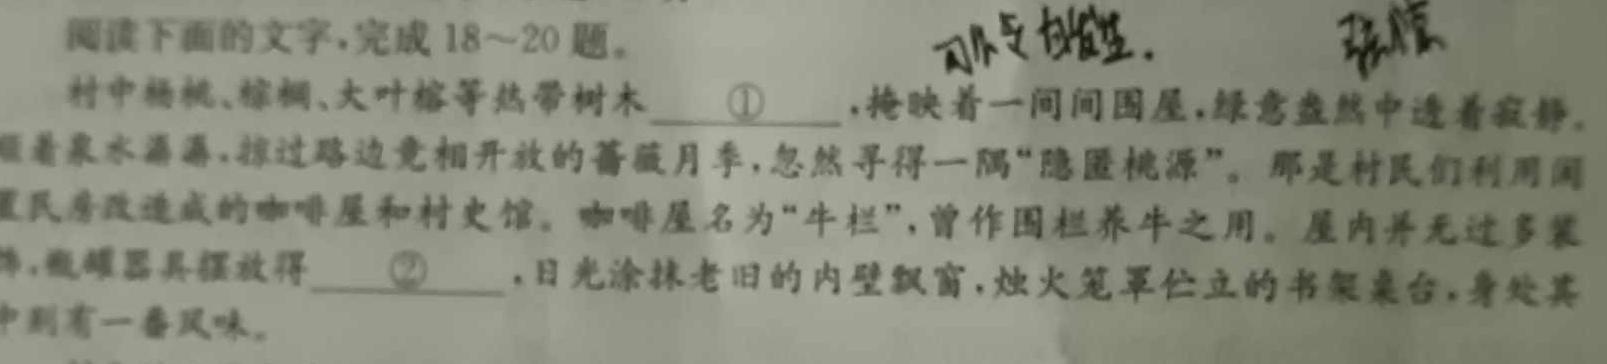 阅读下面的文字，完成18～20题。
村中杨桃、棕榈、大叶榕等热带树木①，掩映着一间间围屋，绿意盎然中透着寂静。
顺着泉水潺潺，掠过路边竞相开放的蔷薇月季，忽然寻得一隅“隐匿桃源”。那是村民们利用闲
置民房改造成的咖啡屋和村史馆。咖啡屋名为“牛栏”，曾作围栏养牛之用。屋内并无过多装
饰，瓶罐器具摆放得②，日光涂抹老旧的内壁飘窗，烛火笼罩伫立的书架桌台，身处其
中别有一番风味。